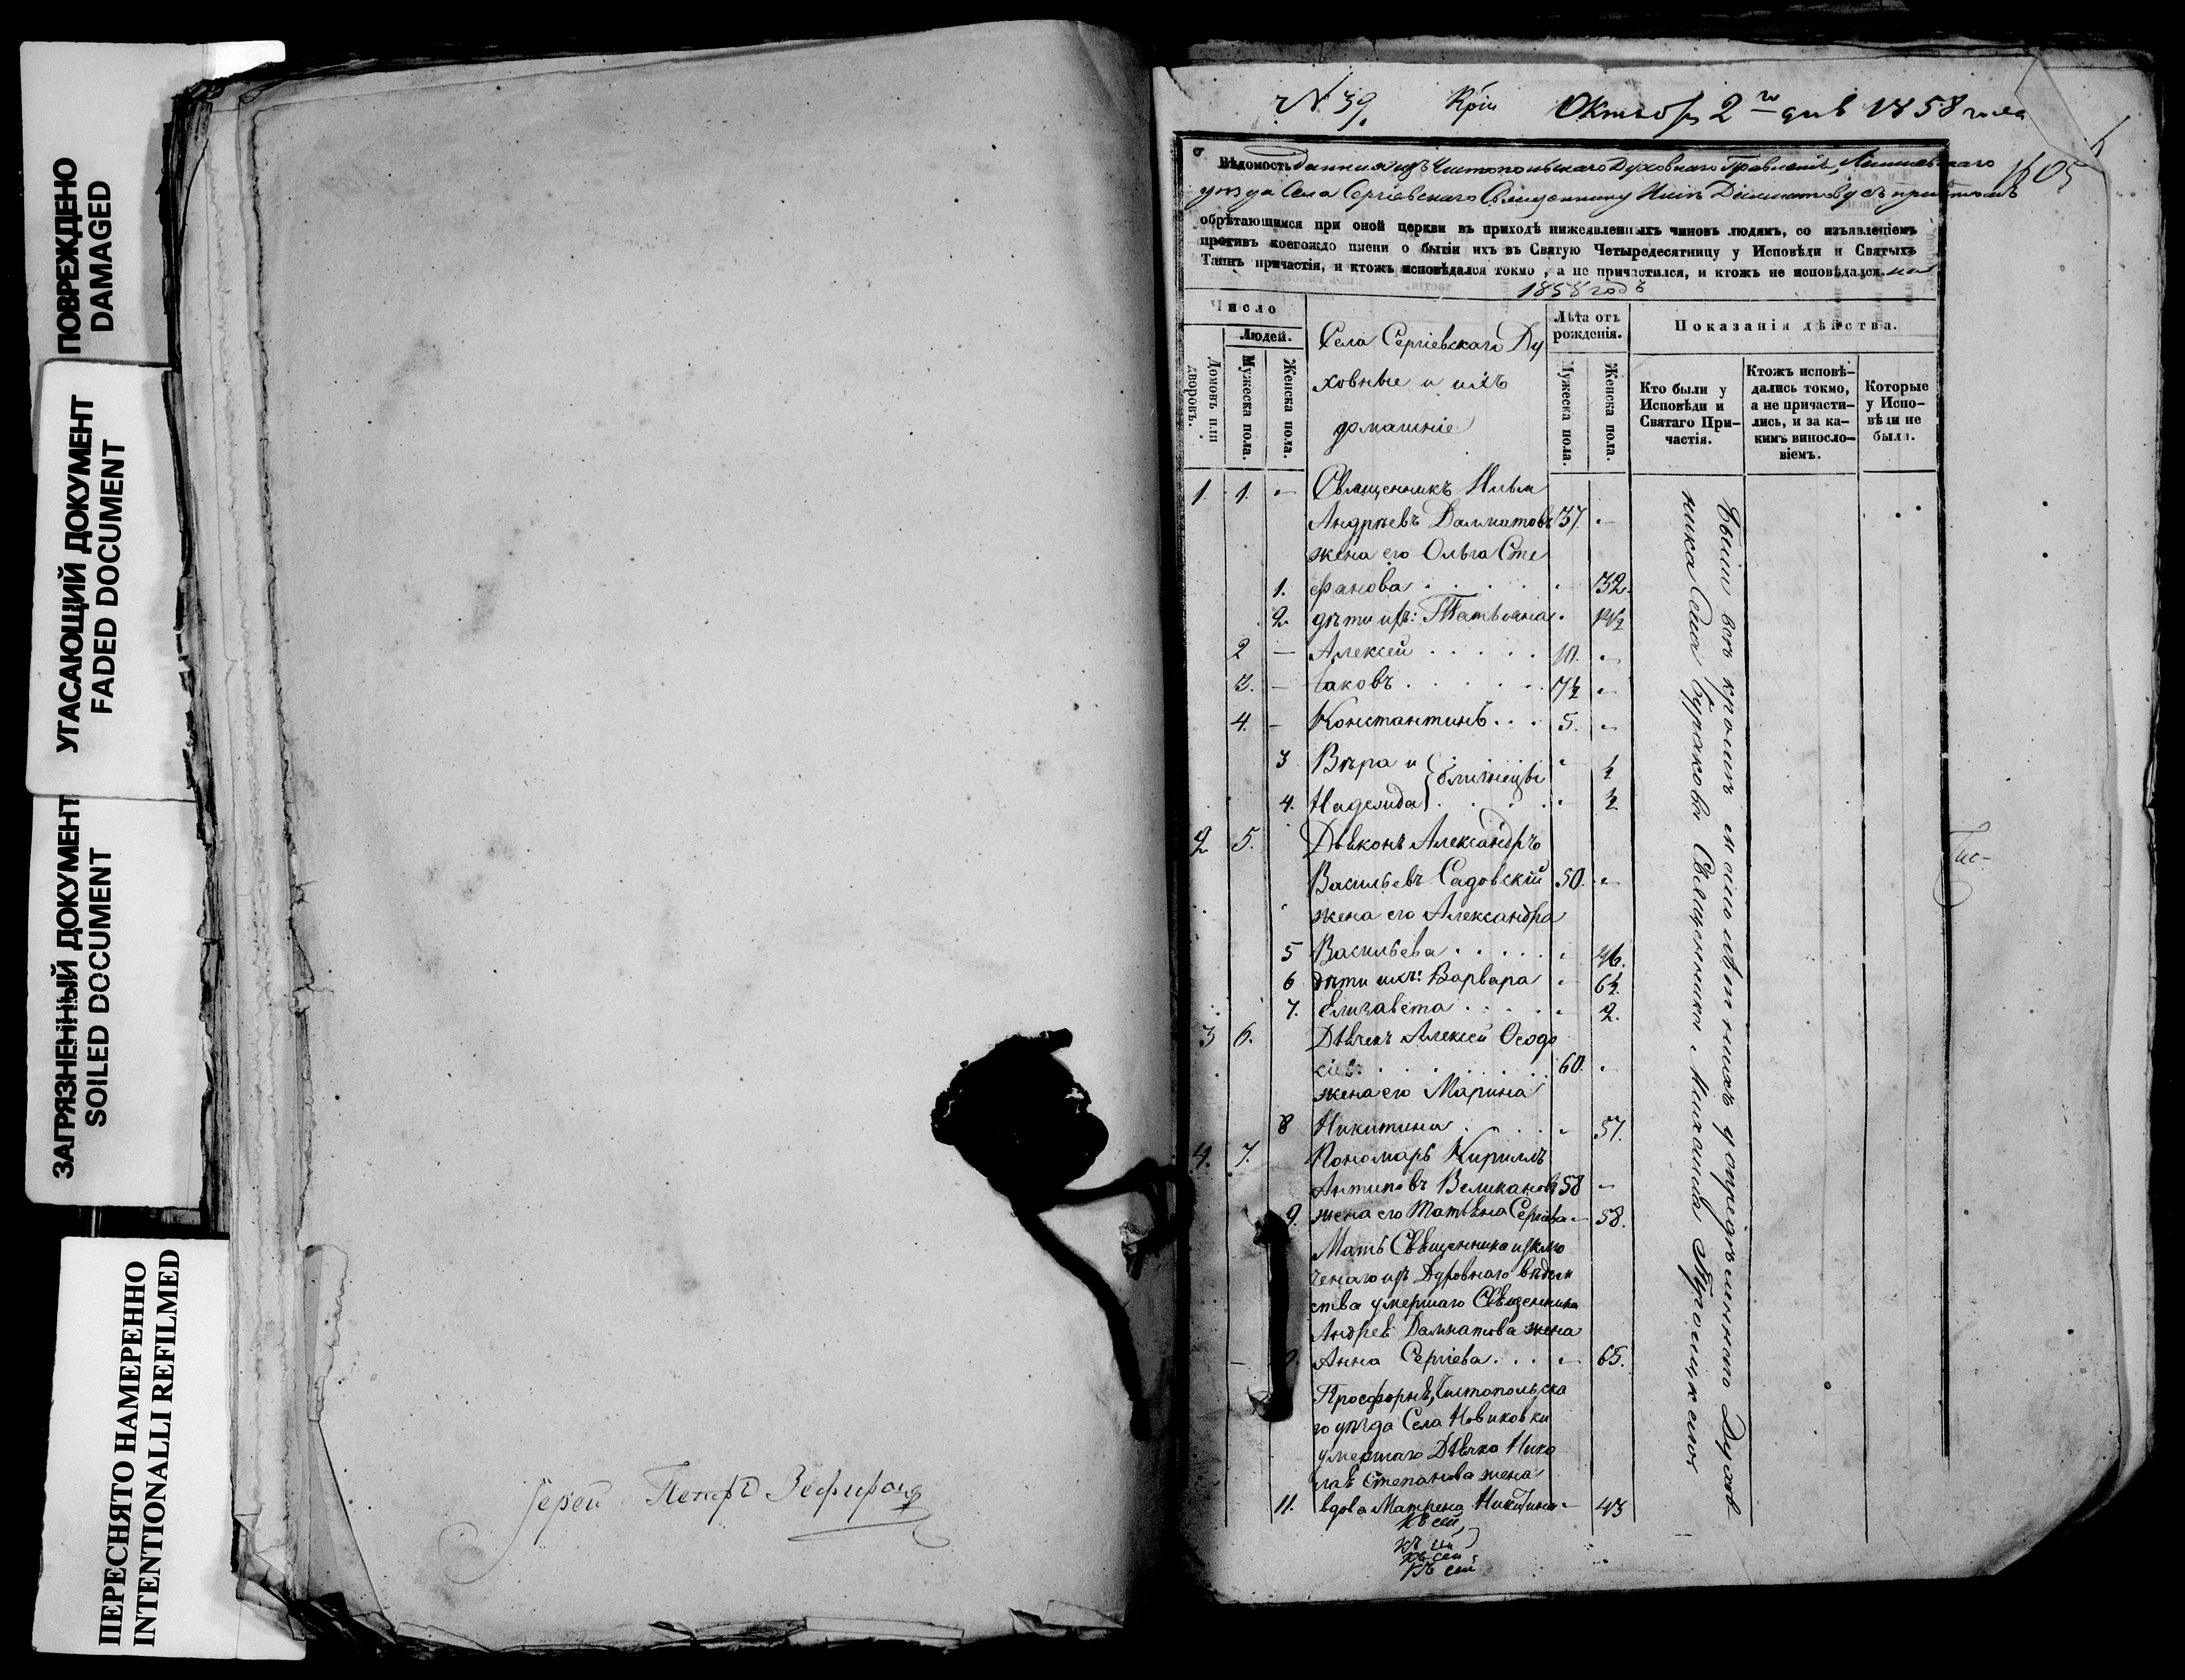 ПОВРЕЖДЕНО
DAMAGED
УГАСАЮЩИЙ ДОКУМЕНТ
FADED DOCUMENT
ЗАГРЯЗНЕННЫЙ ДОКУМЕНТ
SOILED DOCUMENT
ПЕРЕСНЯТО НАМЕРЕННО
INTENTIONALLI REFILMED
Іерей Петръ Зефировъ
№ 39. Октябр 2го дня 1858 года
1605
Вѣдомость данная изъ Чистопольскаго Духовнаго Правленія,
уѣзда Села Сергіевскаго Священнику Далматову съ причтомъ
обрѣтающимся при оной церкви въ приходѣ нижеявленныхъ чиновъ людямъ, со изъявленіемъ
противъ коегождо имени о бытіи ихъ въ Святую Четыредесятницу у Исповѣди и Святыхъ
Таинъ причастія, и ктожъ исповѣдался токмо, а не причастился, и ктожъ не исповѣдался. на
1858 годъ
Число
Домовъ или дворовъ.
Людей.
Мужеска пола.
Женска пола.
Села Сергіевскаго Ду
ховные и ихъ
домашніе
Лѣта отъ рожденія.
Мужеска пола.
Женска пола.
Показанія дѣйства.
Кто были у Исповѣди и Святаго Причастія.
Ктожъ исповѣдались токмо, а не причастились, и за какимъ винословіемъ.
Которые у Исповѣди не были.
1. 1. - Священникъ Илья
Андреевъ Далматовъ 37. -
жена его Ольга Сте
1. фанова 32.
2. дѣти ихъ: Татьяна
2 - Алексей 10. -
3. - Іаковъ 7½ -
4. - Константинъ 5. -
3 Вѣра и близнецы ½
4. Надежда ½
2 5. Діаконъ Александръ
Васильевъ Садовскій 50. -
жена его Александра
5 Васильева 46.
6 дѣти ихъ: Варвара 6½
7. Елизавета 2.
3 6. Дьячекъ Алексей Ѳеодо
60. -
жена его Марина
8 Никитина 57.
4. 7. Пономарь Кириллъ
Антиповъ Великановъ 58 -
9. жена его Татьяна Сергіева 58.
Мать Священника исклю
ченаго изъ Духовнаго вѣдом
ства умершаго Священника
Андрея Далматова жена
Анна Сергіева 65.
Просфорня, Чистопольска
го уѣзда Села Новиковки
умершаго Дьячка Нико
лая Степанова жена
11. вдова Матрена Никитина 43
къ сей
къ сей
къ сей
къ сей
Были всѣ кромѣ малолѣтнихъ у опредѣленнаго Духов
ника Села Священника Михаила